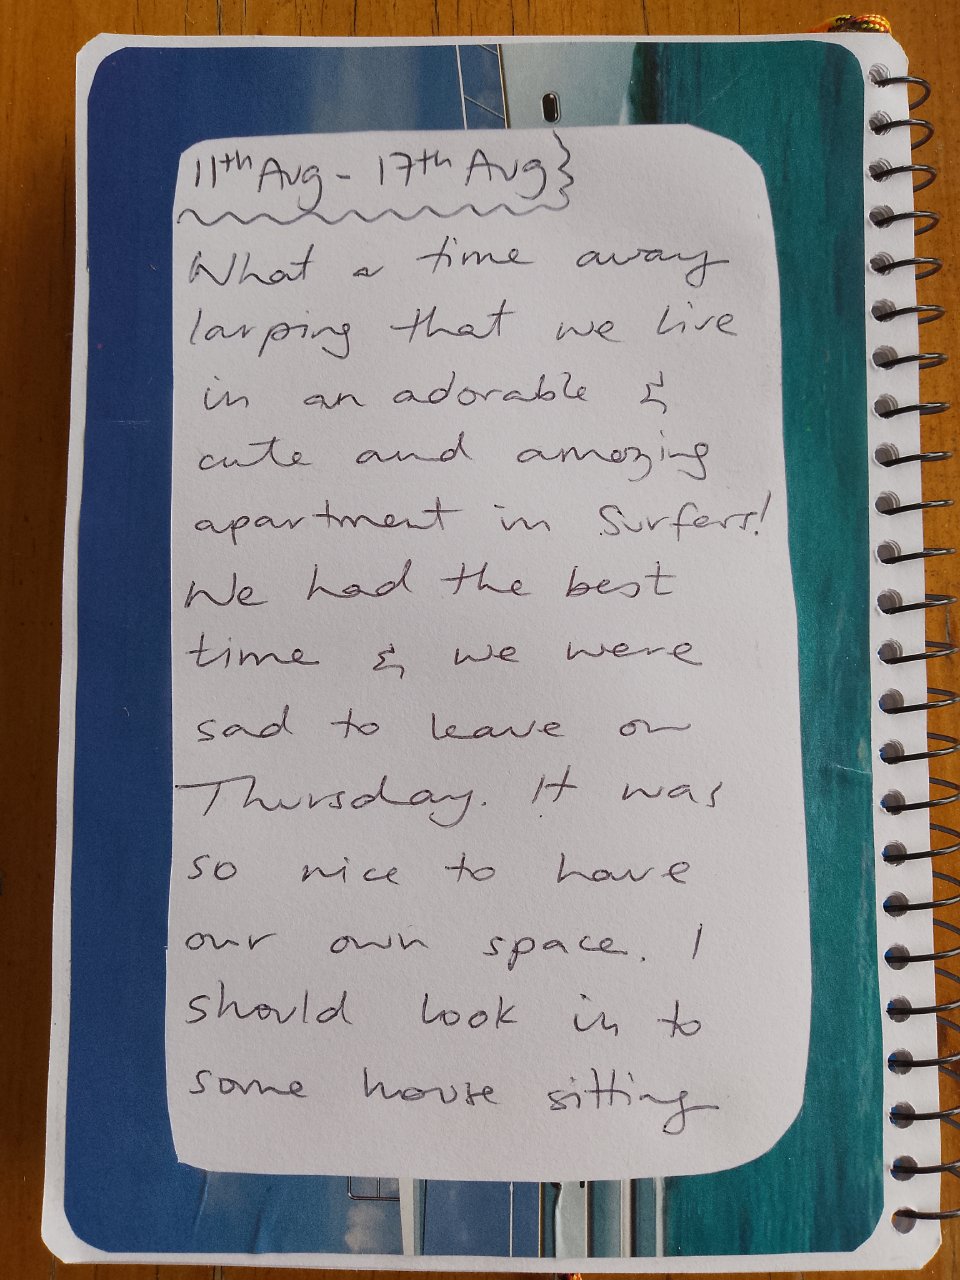 11th Aug - 17th Aug}
What a time away
larping that we live
in an adorable &
cute and amazing
apartment in Surfers!
We had the best
time & we were
sad to leave on
Thursday. It was
so nice to have
our own space. I
should look in to
some house sitting